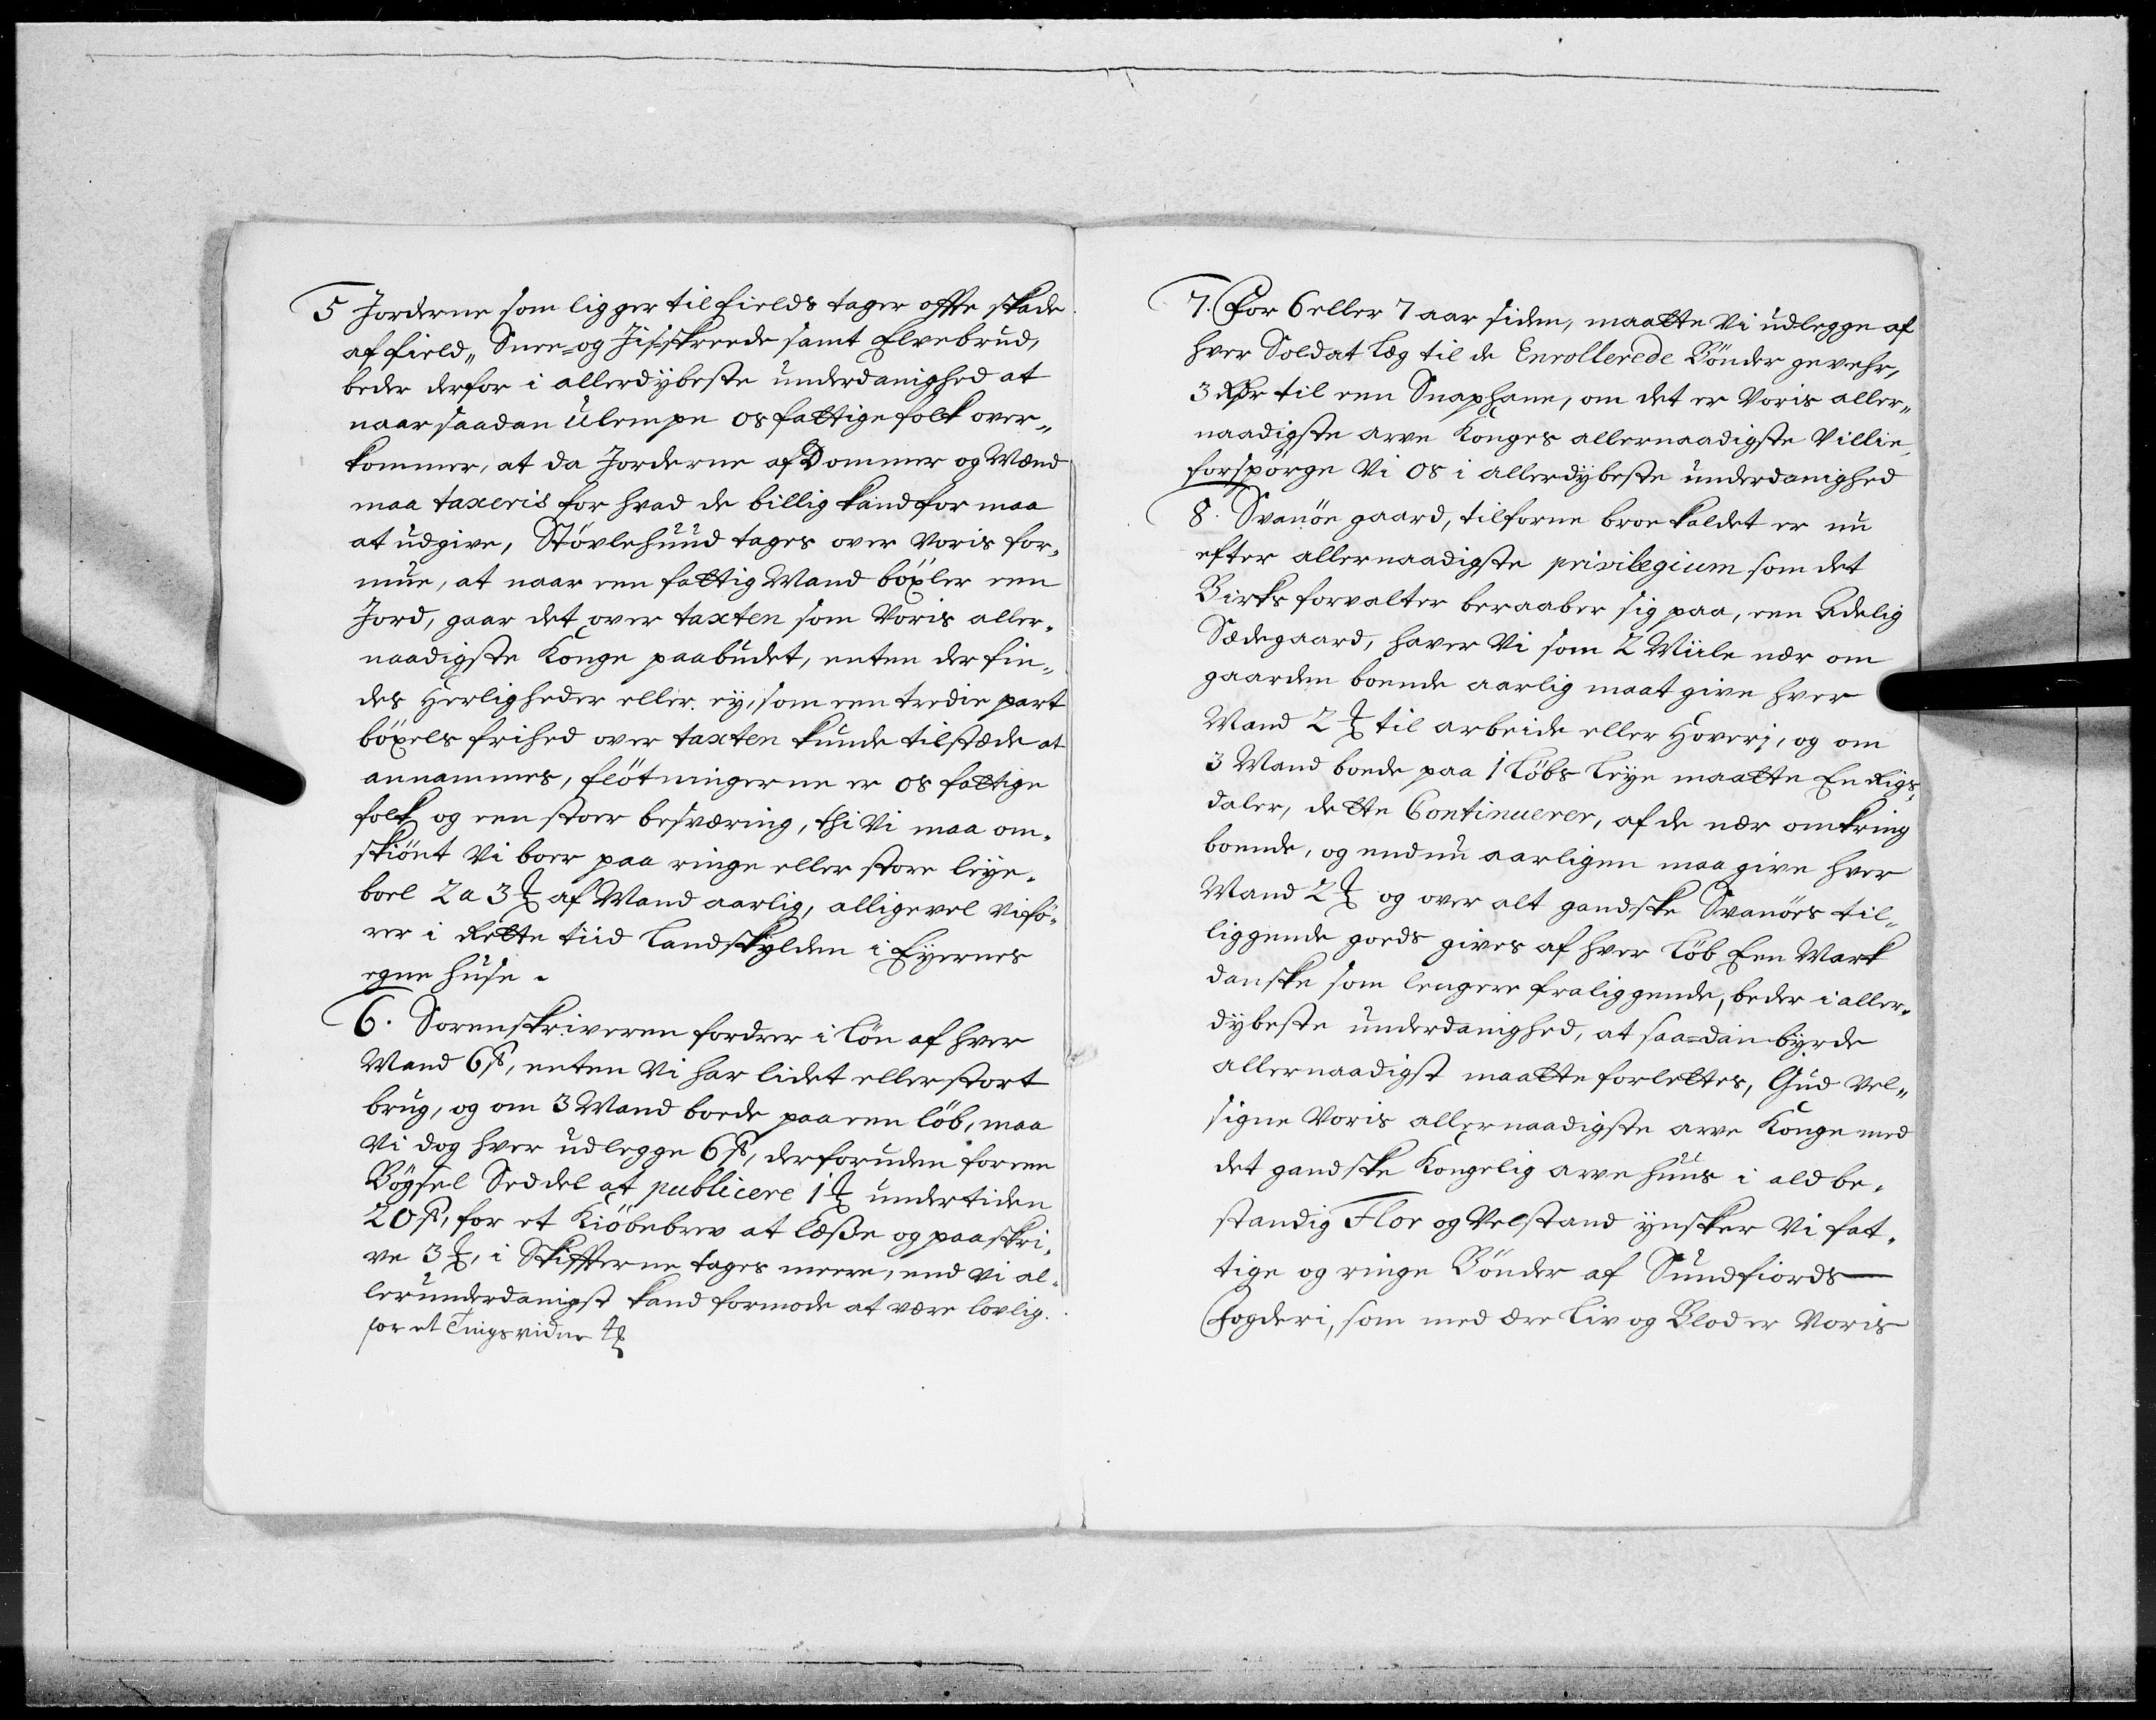 5 Jorderne som ligger til fields tager offte skade
af field„ Snee- og Jisskreede samt Elvebrud,
beder derfor i allerdybeste underdanighed at
naar saadan Ulempe os fattige folk over„
kommer, at da Jorderne af Dommer og Mænd
maa taxeris for hvad de billig kand for maa
at udgive, Stövlehuud tages over Voris for„
mue, at naar een fattig Mand böxler een
Jord, gaar det over taxten som Voris aller„
naadigste Konge paabudet, enten der fin„
des Herligheder eller ey, som een tredie part
böxels frihed over taxten kunde tilstæde at
annammes, flötningerne er os fattige
folk og een stoer besværing, thi Vi maa om„
skiönt Vi boer paa ringe eller store leye„
boel 2 a 3 ℔ af Mand aarlig, alligevel Vi fö„
rer i Rette tiid Landskylden i Eyernes
egne huse.
6. Sorenskriveren fordrer i Lön af hver
Mand 6 ß, enten Vi har lidet eller stort
brug, og om 3 Mand boede paa een löb, maa
Vi dog hver udlegge 6 ß, derforuden for een
Bögsel Seddel at publicere 1 ℔ undertiden
20 ß, for et Kiöbebrev at læße og paaskri„
ve 3 ℔, i Skiffterne tages meere, end Vi al„
lerunderdanigst kand formode at være lovlig.
for et Tingsvidne 4 ℔
7. For 6 eller 7 aar siden, maatte Vi udlegge af
hver Soldat Læg til de Enrollerede Bönder gevehr,
3 Rdr til een Snaphane, om det er Voris aller„
naadigste arve Konges allernaadigste Villie,
forspörge Vi os i allerdybeste underdanighed
8. Svanöe gaard, tilforne broe kaldet er nu
efter allernaadigste privilegium som det
Birks forvalter beraaber sig paa, een Adelig
Sædegaard, haver Vi som 2 Miile nær om
gaarden boende aarlig maat give hver
Mand 2 ℔ til arbeide eller Hoverj, og om
3 Mand boede paa 1 Löbs Leye maatte En Rigs„
daler, dette Continuerer, af de nær omkring
boende, og endnu aarligen maa give hver
Mand 2 ℔ og over alt gandske Svanöes til„
liggende goeds gives af hver Löb Een Mark
danske som lengere fraliggende, beder i aller„
dybeste underdanighed, at saa-dan byrde
allernaadigst maatte forlettes, Gud Vel„
signe Voris allernaadigste arve Konge med
det gandske Kongelig arve huus i ald be„
standig Flor og Velstand ynsker Vi fat„
tige og ringe Bönder af Sundfiords
Fogderi, som med ære Liv og Blod er Voris